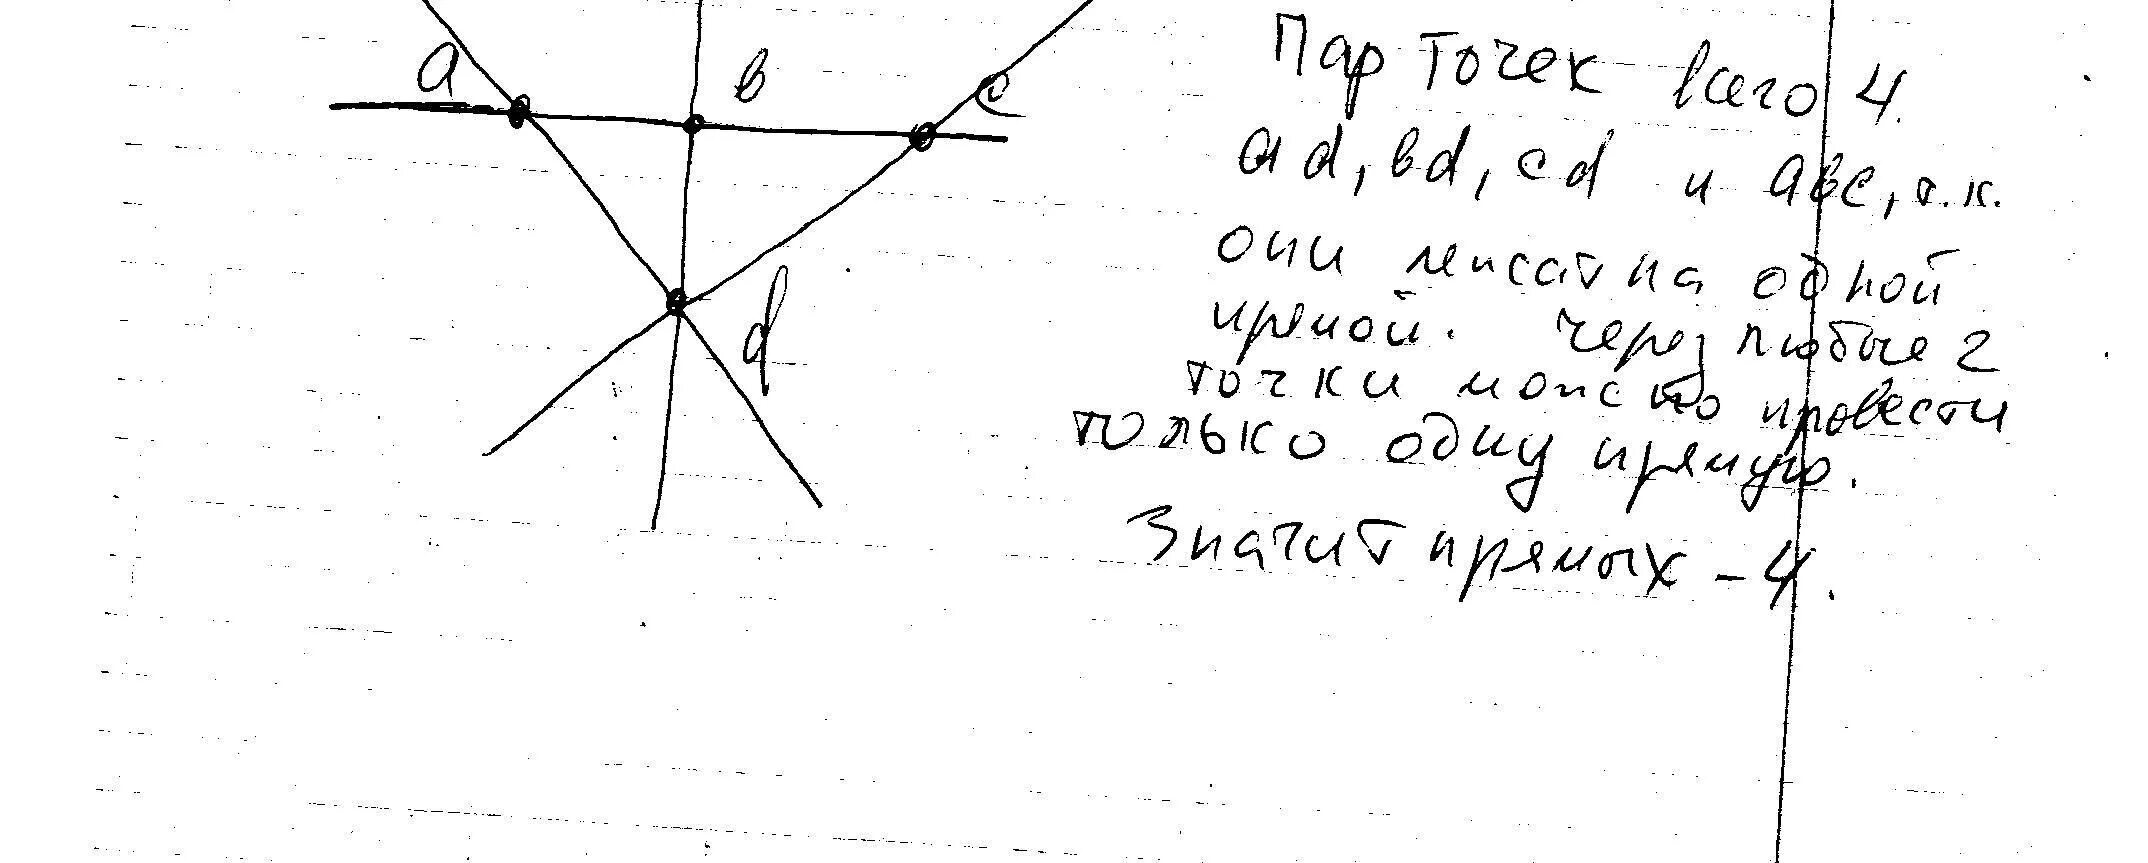 a
в
c
d
Пар точек всего 4.
ad, вd, cd и авс, т.к.
они лежат на одной
прямой. Через любые 2
точки можно провести
только одну прямую.
Значит прямых - 4.